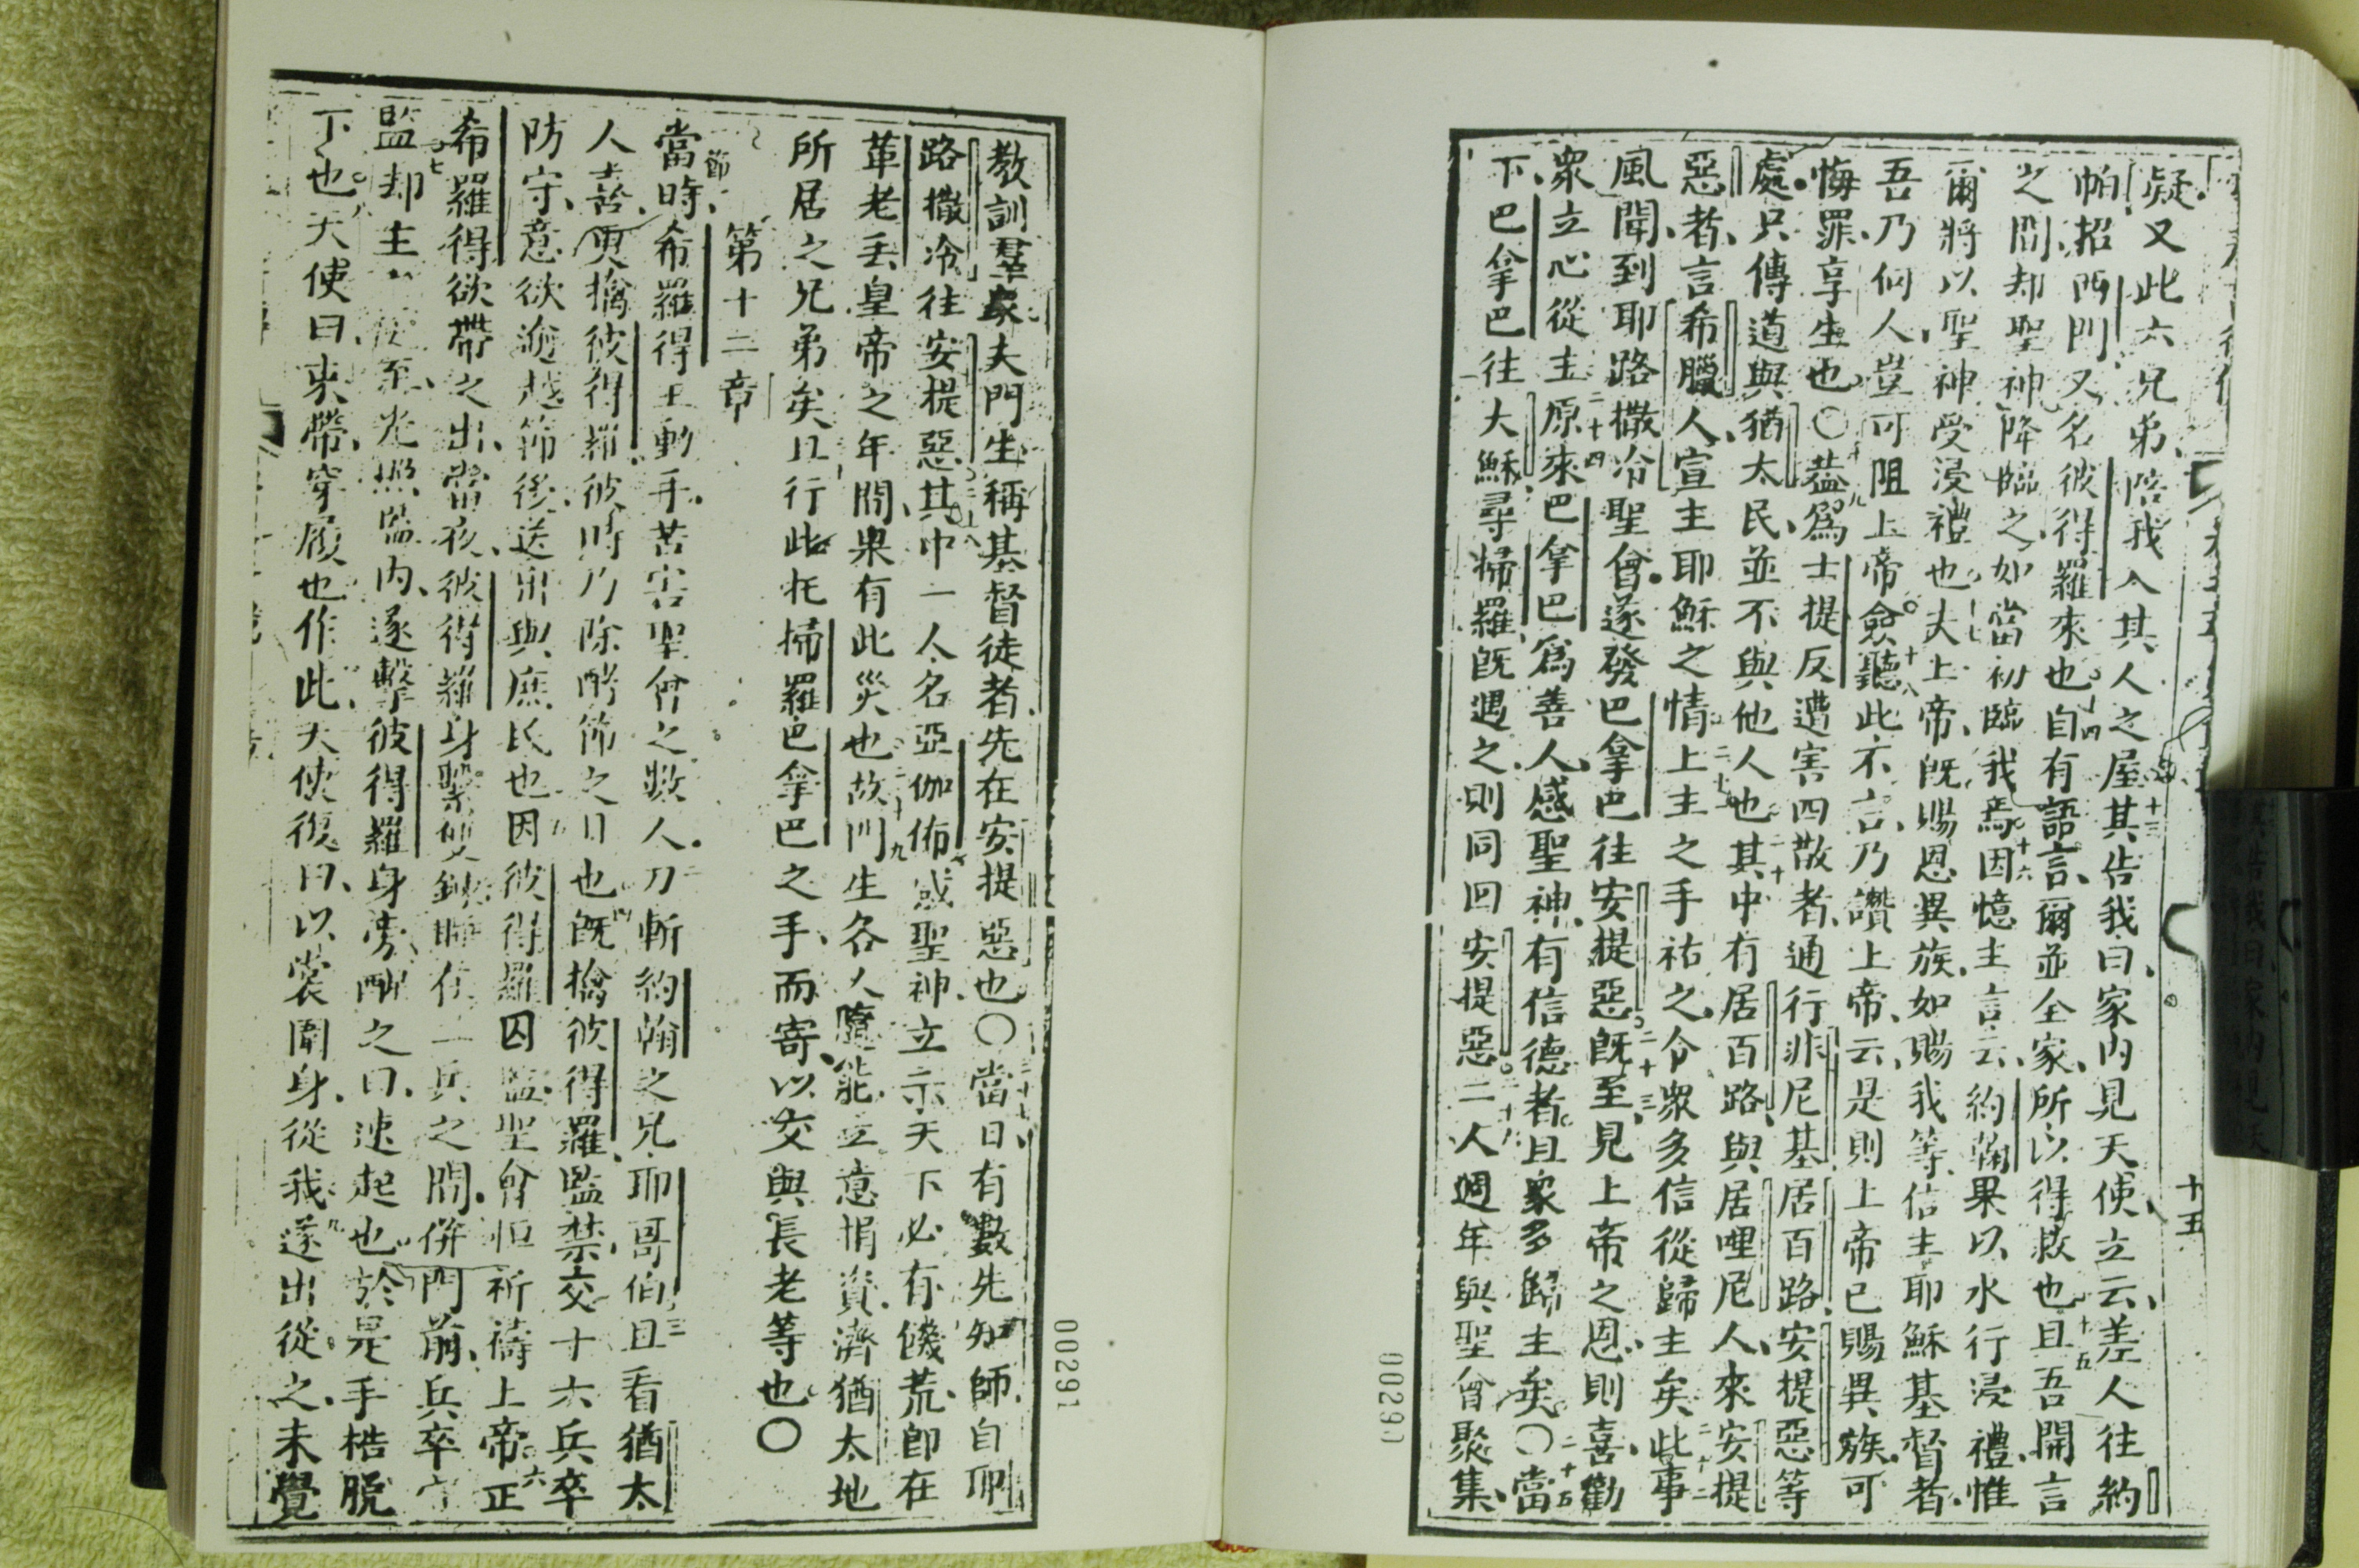 疑又此六兄弟陪我入其人之屋其告我曰家內見天使立云差人往約
帕招西門又名彼得羅來也自有語言爾並全家所以得救也且吾開言
之間却聖神降臨之如當初臨我焉因憶主言云約翰果以水行浸禮惟
爾將以聖神受浸禮也夫上帝既賜恩異族如賜我等信主耶穌基督者
吾乃何人豈可阻上帝僉聽此不言乃讚上帝云是則上帝已賜異族可
悔罪享生也〇葢爲士提反遭害四散者通行非尼基居百路安提惡等
處只傳道與猶太民並不與他人也其中有居百路與居哩尼人來安提
惡者言希臘人宣主耶穌之情上主之手祐之令衆多信從歸主矣此事
風聞到耶路撒冷聖會遂發巴拿巴往安提惡既至見上帝之恩則喜勸
衆立心從主原來巴拿巴爲善人感聖神有信德者且衆多歸主矣〇當
下巴拿巴往大穌尋掃羅既遇之則同回安提惡二人週年與聖會聚集
十五
00290
教訓羣衆夫門生稱基督徒者先在安提惡也〇當日有數先知師自耶
路撒冷往安提惡其中一人名亞伽佈感聖神立示天下必有饑荒卽在
革老丢皇帝之年間果有此災也故門生各人隨能立意捐資濟猶太地
所居之兄弟矣且行此托掃羅巴拿巴之手而寄以交與長老等也〇
第十二章
節
當時希羅得王動手苦害聖會之數人刀斬約翰之兄耶哥伯且看猶太
人喜更擒彼得羅彼時乃除酵節之日也既擒彼得羅監禁交十六兵卒
防守意欲逾越節後送出與庶民也因彼得羅囚監聖會恒祈禱上帝正
希羅得欲帶之出當夜彼得羅身繫雙鍊睡在二兵之間併門前兵卒守
監却主使至光照監内遂擊彼得羅身旁醒之曰速起也於是手梏脫
下也天使曰束帶穿履也作此天使復曰以裳圍身從我遂出從之未覺
00291